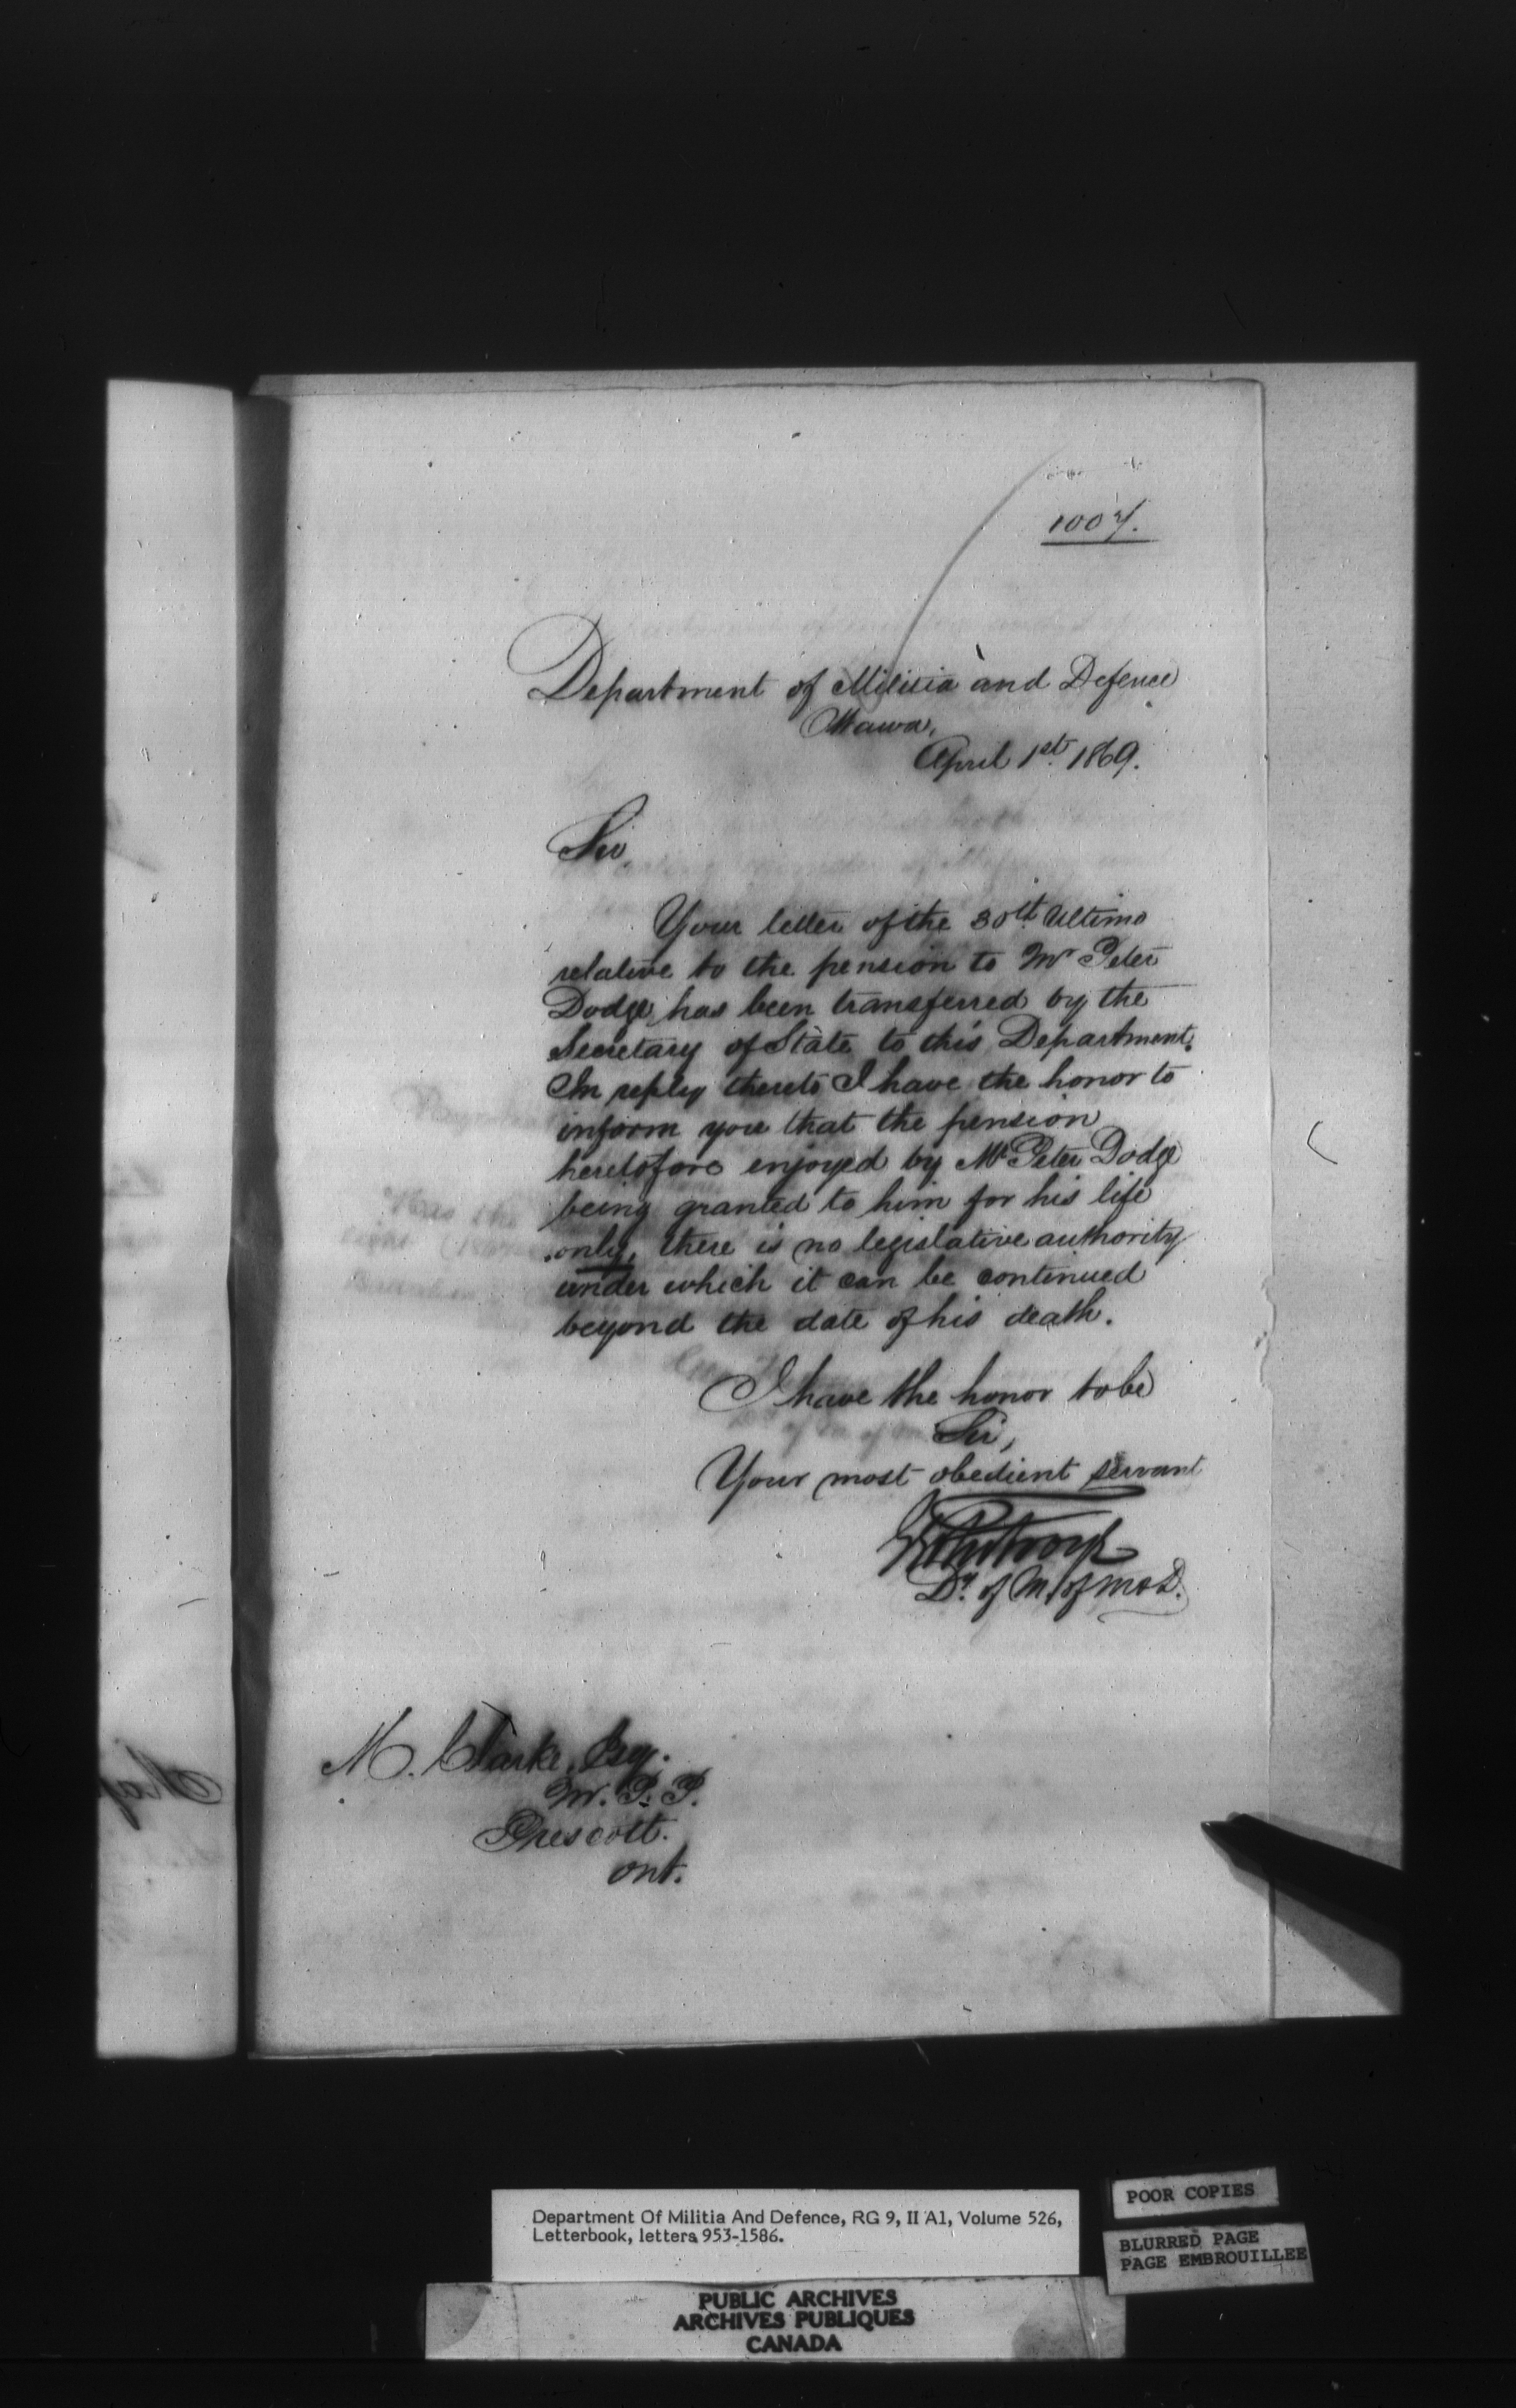 1007.
Department of Militia and Defence
Ottawa,
April 1st 1869.
Sir,
Your letter of the 30th Ultimo
relative to the pension to Mr Peter
Dodge, has been transferred by the
Secretary of State to this Department.
In reply thereto I have the honor to
inform you that the pension
heretofore enjoyed by Mr Peter Dodge
being granted to him for his life
only, there is no legislative authority
under which it can be continued
beyond the date of his death.
I have the honor to be
Sir,
Your most obedient servant
Dy. of M. of M & D.
M. Clarke, Esq.
M. P. P.
Prescott.
Ont.
POOR COPIES
Department Of Militia And Defence, RG 9, II A1, Volume 526,
Letterbook, letters 953-1586.
BLURRED PAGE
PAGE EMBROUILLEE
PUBLIC ARCHIVES
ARCHIVES PUBLIQUES
CANADA